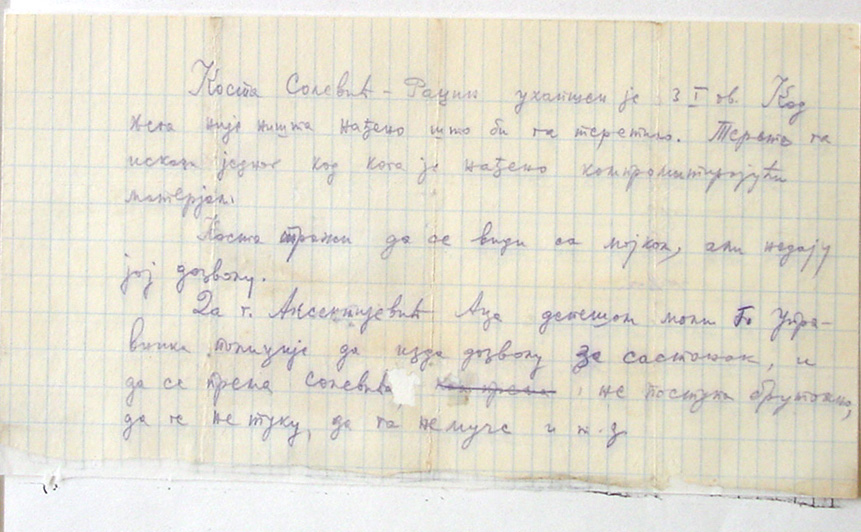 Коста Солевић - Рацин ухапшен је 3 I ов. Код
њега није ништа нађено што би га теретило. Терете га
искази једног код кога је нађено компромитирајући
матерјал.
Коста тражи да се види са мајком, али недају
јој дозволу.
Да г. Аксентијевић Аца депешом моли Гo Упра-
вника полиције да изда дозволу за састанак, и
да се према Солевићу, не поступа брутално,
да га не туку, да га не муче и т.д.